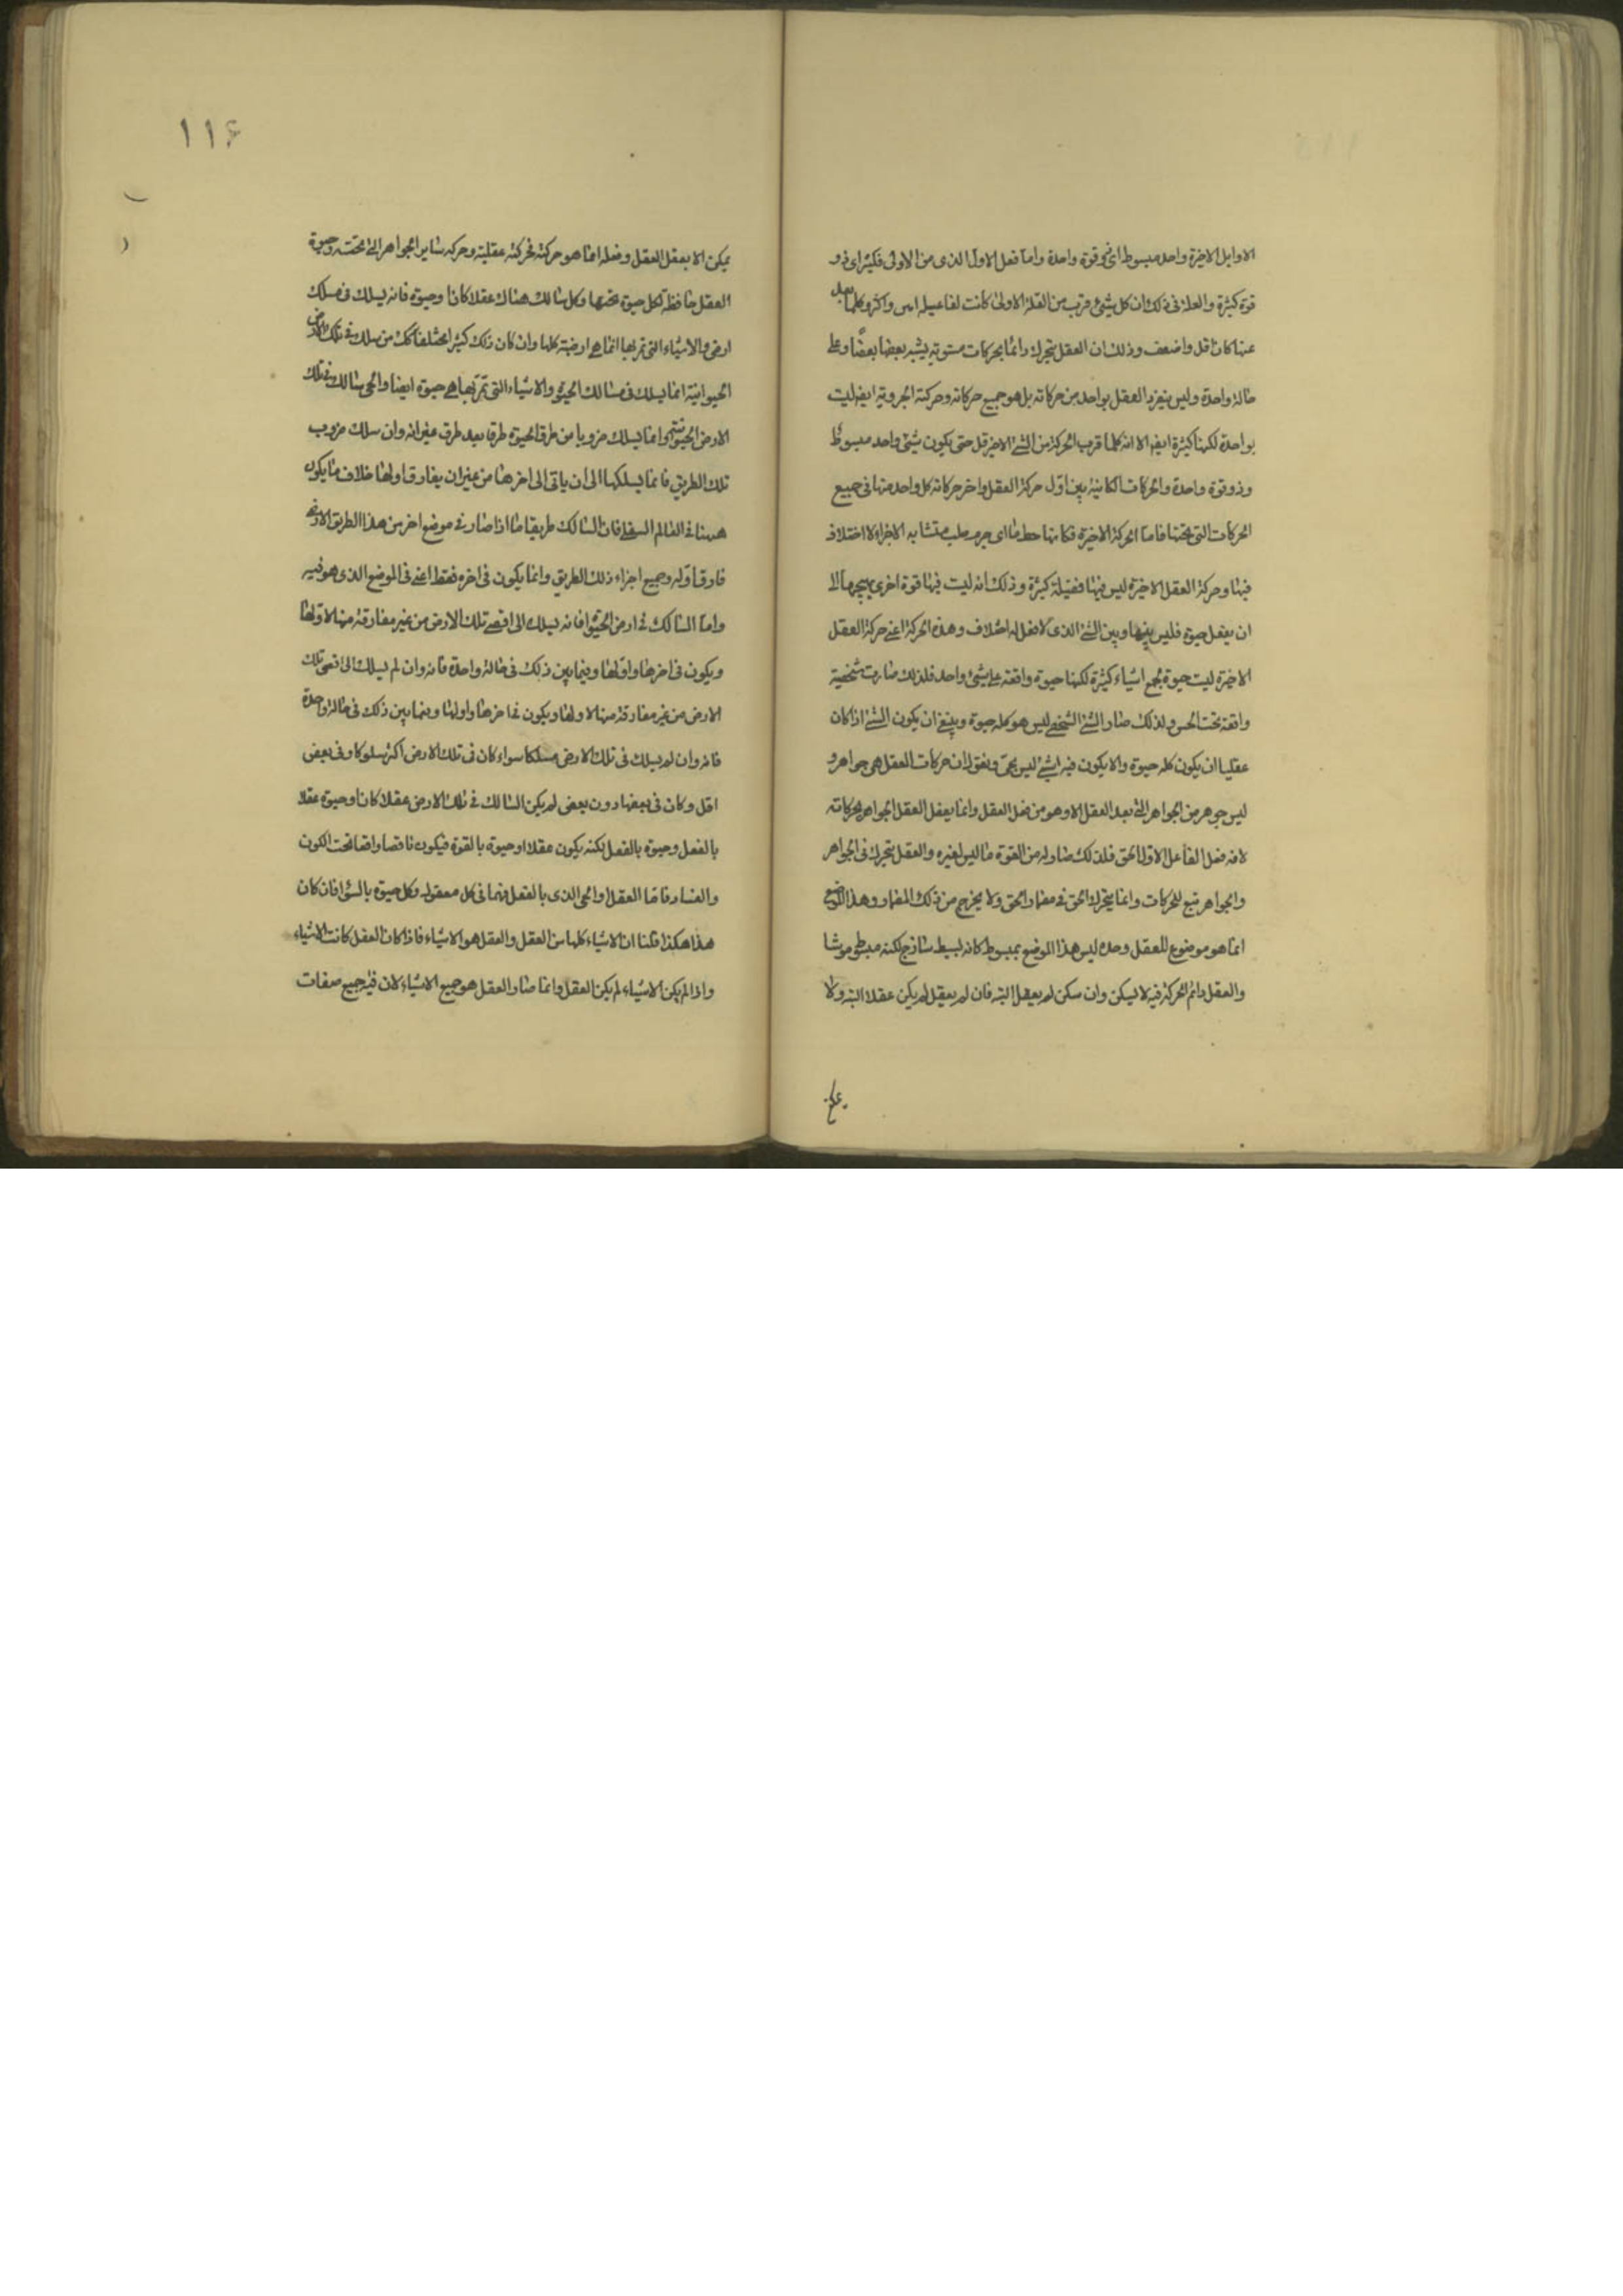 الاوايل الاخيرة واحد مبسوط اى ذو قوة واحدة واما فعل الاول الذى من الاولى فكثير اى ذو
قوة كثيرة والعلة فى ذلك ان كل شيئ قرب من العلة الاولى كانت افاعيله ابين واكثر وكلما بعد
عنها كان اقل واضعف وذلك ان العقل يتحرك دائما بحركات مستوية يشبه بعضها بعضا وعلى
حالة واحدة وليس ينفرد العقل بواحد من حركاته بل هو جميع حركاته وحركته الجزوية ايضا ليست
بواحدة لكنها كثيرة ايضا الا انه كلما قرب الحركة من الشئ الاخير قل حتى يكون شيئ واحد مبسوط
وذو قوة واحدة والحركات الكاينة بين اول حركة العقل واخر حركاته كل واحد منها فى جميع
الحركات التى تحتها فاما الحركة الاخيرة فكانها خط ما اى جرم صلب متشابه الاجزاء لا اختلاف
فيها وحركة العقل الاخيرة ليس فيها فضيلة كثيرة وذلك انه ليست فيها قوة اخرى يهيجها الى
ان يفعل حيوة فليس بينها وبين الشئ الذى لا فعل له اختلاف وهذه الحركة اعنى حركة العقل
الاخيرة ليست حيوة بجمع اشياء كثيرة لكنها حيوة واقعة على شيئ واحد فلذلك صارت شخصية
واقعة تحت الحس ولذلك صار الشئ الشخصى ليس هو كله حيوة وينبغى ان يكون الشئ اذا كان
عقليا ان يكون كله حيوة والا يكون فيه شئ ليس بحى ونقول ان حركات العقل هى جواهر و
ليس جوهر من الجواهر التى بعد العقل الا وهو من فعل العقل وانما يفعل العقل الجواهر بحركاته
لانه فعل الفاعل الاول الحق فلذلك صار له من القوة ما ليس لغيره والعقل يتحرك فى الجواهر
والجواهر تتبع للحركات وانما يتحرك الحق فى مضمار الحق ولا يخرج من ذلك المضمار وهذا الموضع
انما هو موضوع للعقل وحده ليس هذا الموضع بمبسوط كانه بسيط ساذج لكنه مبسوط موشا
والعقل دائم الحركة فيه لا يسكن وان سكن لم يعقل البتة فان لم يعقل لم يكن عقلا البتة ولا
١١٤
يمكن الا يعقل العقل وفعله انما هو حركته فحركته عقلية وحركة ساير الجواهر التى تحته وحيوة
العقل حافظة لكل حيوة تحتها وكل سالك هناك عقلا كان او حيوة فانه يسلك فى مسلك
ارضى والاشياء التى تمر بها انما هى ارضية كلها وان كان ذلك كثير مختلفا كك من سلك فى تلك الارض
الحيوانية انما يسلك فى مسالك الحيوة والاشياء التى تمر بها هى حيوة ايضا والحى سالك فى تلك
الارض الحيوانية وانما يسلك ضروبا من طرق الحيوة طرقا بعد طرق غير انه وان سلك ضروب
تلك الطريق فانما يسلكها الى ان ياتى الى اخرها من غير ان يفارق اولها خلاف ما يكون
ههنا فى العالم السفلى فان السالك طريقا ما اذا صار فى موضع اخر من هذا الطريق الارضى
فارق اوله وجميع اجزاء ذلك الطريق وانما يكون فى اخره فقط اعنى فى الموضع الذى هو فيه
واما السالك فى ارض الحيوة فانه يسلك الى اقصى تلك الارض من غير مفارقة منها لاولها
ويكون فى اخرها واولها وفيما بين ذلك فى حالة واحدة فانه وان لم يسلك الى اقصى تلك
الارض من غير مفارقة منها لاولها ويكون فى اخرها واولها وفيما بين ذلك فى حالة واحدة
فانه وان لم يسلك فى تلك الارض مسلكا سواء كان فى تلك الارض اكثر سلوكا وفى بعض
اقل وكان فى بعضها دون بعض لم يكن السالك فى تلك الارض عقلا كان او حيوة عقلا
بالفعل وحيوة بالفعل لكنه يكون عقلا او حيوة بالقوة فيكون ناقصا واقعا تحت الكون
والفساد فاما العقل والحى الذى بالفعل فهما فى كل معقول وكل حيوة بالسوا فان كان
هذا هكذا قلنا ان الاشياء كلها من العقل والعقل هو الاشياء فاذا كان العقل كانت الاشياء
واذا لم يكن الاشياء لم يكن العقل وانما صار العقل هو جميع الاشياء لان فيه جميع صفات